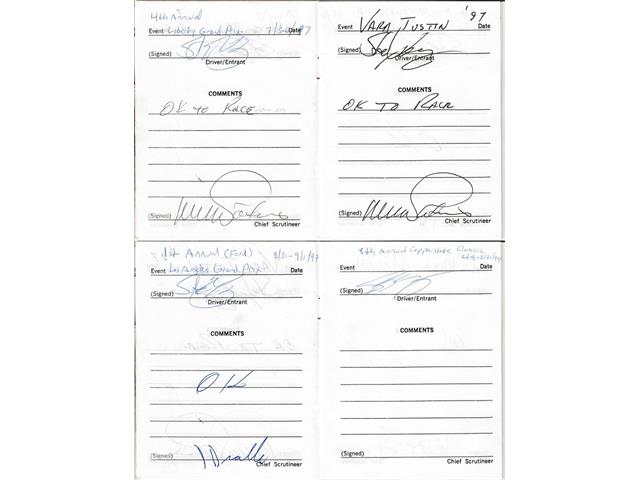 4th Annual
Event Liberty Grand Prix Date 7/
(Signed)
Driver/Entrant
COMMENTS
OK TO RACE
(Signed)
Chief Scrutineer
'97
Event VARA TUSTIN Date
(Signed)
Driver/Entrant
COMMENTS
OK TO RACE
(Signed)
Chief Scrutineer
1st Annual (Ford) 8/31-9/1/97
Event Los Angeles Grand Prix Date
(Signed)
Driver/Entrant
COMMENTS
OK
(Signed)
Chief Scrutineer
8th Annual Copperstate Classic
Event Date
(Signed)
Driver/Entrant
COMMENTS
(Signed)
Chief Scrutineer